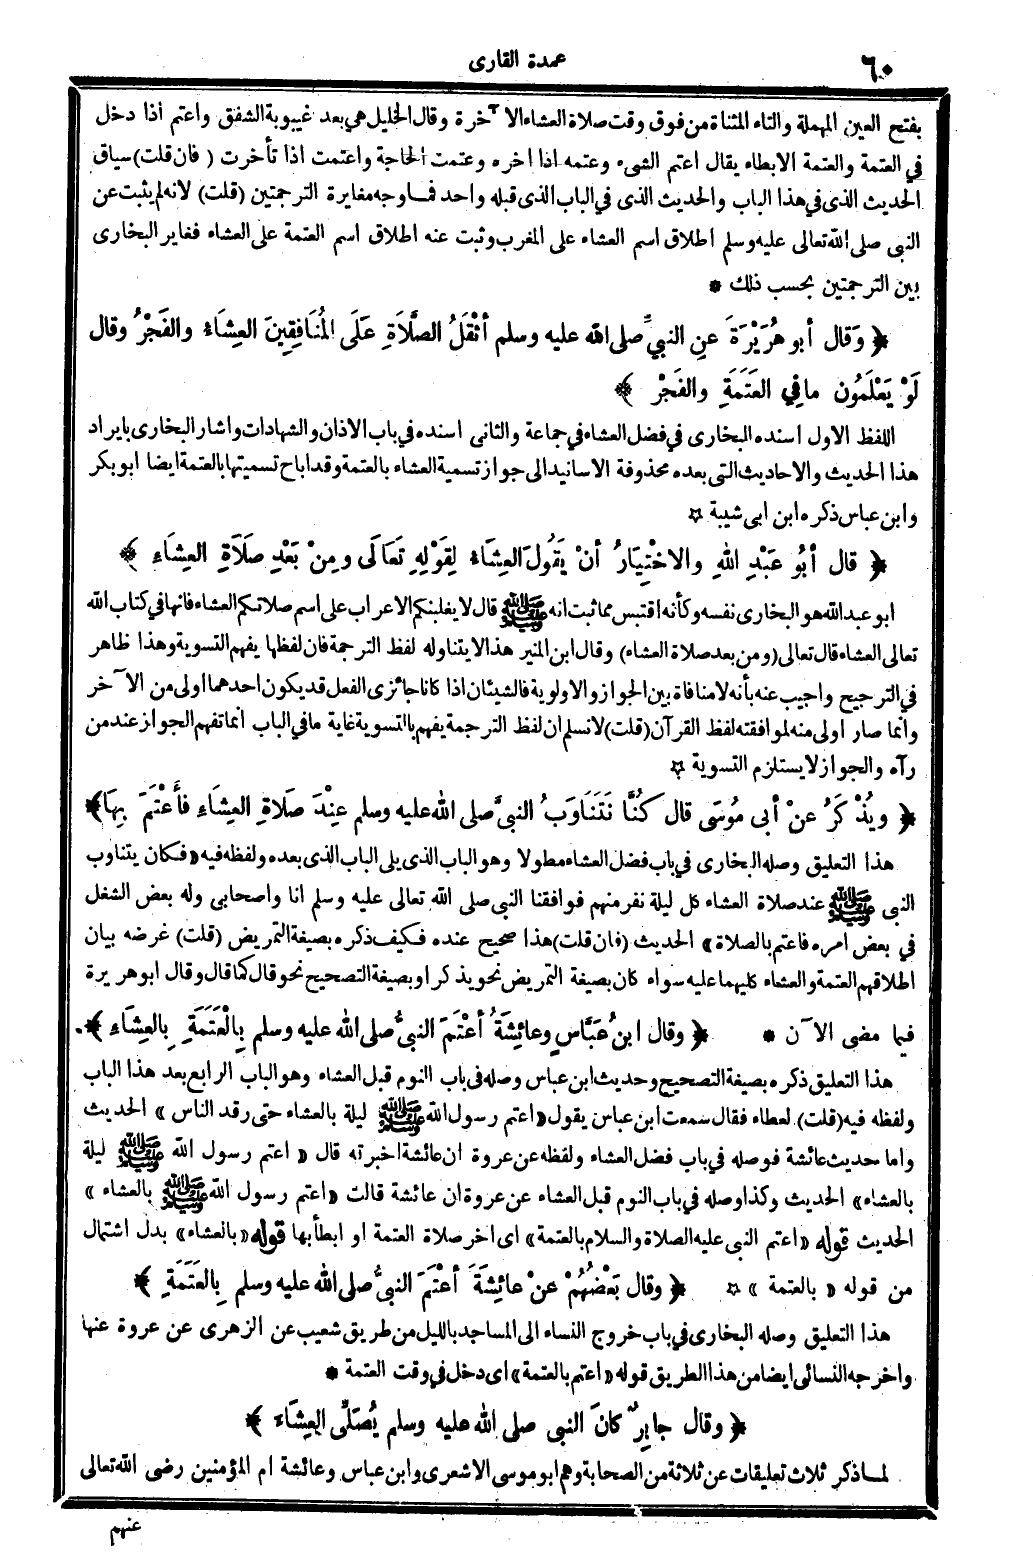 ٦٠
عمدة القارى
بفتح العين المهملة والتاء المثناة من فوق وقت صلاة العشاء الآخرة وقال الخليل هي بعد غيبوبة الشفق واعتم اذا دخل
في العتمة والعتمة الابطاء يقال اعتم الشىء وعتمه اذا اخره وعتمت الحاجة واعتمت اذا تأخرت ( فان قلت) سياق
الحديث الذى في هذا الباب والحديث الذى في الباب الذى قبله واحد فما وجه مغايرة الترجمتين (قلت) لانه لم يثبت عن
النبى صلى الله تعالى عليه وسلم اطلاق اسم العشاء على المغرب وثبت عنه اطلاق اسم العتمة على العشاء فغاير البخارى
بين الترجمتين بحسب ذلك *
﴿ وَقال أبو هُرَيْرَةَ عنِ النبيِّ صلى الله عليه وسلم أثْقَلُ الصَّلاَةِ عَلَى المُنَافِقِينَ العِشَاءُ والفَجْرُ وقال
لَوْ يَعْلَمُون ما في العَتَمَةِ والفَجْرِ ﴾
اللفظ الاول اسنده البخارى في فضل العشاء في جماعة والثانى اسنده في باب الاذان والشهادات واشار البخارى بايراد
هذا الحديث والاحاديث التى بعده محذوفة الاسانيد الى جواز تسمية العشاء بالعتمة وقد اباح تسميتها بالعتمة ايضا ابو بكر
وابن عباس ذكره ابن ابى شيبة ☆
﴿ قال أبُو عَبْدِ اللهِ والاخْتِيَارُ أنْ يَقُولَ العِشَاءُ لِقَوْلِهِ تَعَالَى ومِنْ بَعْدِ صَلَاةِ العِشَاءِ ﴾
ابو عبد الله هو البخارى نفسه وكأنه اقتبس مما ثبت انه ﷺ قال لا يغلبنكم الاعراب على اسم صلاتكم العشاء فانها في كتاب الله
تعالى العشاء قال تعالى (ومن بعد صلاة العشاء) وقال ابن المنير هذا لا يتناوله لفظ الترجمة فان لفظها يفهم التسوية وهذا ظاهر
في الترجيح واجيب عنه بأنه لا منافاة بين الجواز والاولوية فالشيئان اذا كانا جائزى الفعل قد يكون احدهما اولى من الآخر
وانما صار اولى منه لموافقته لفظ القرآن (قلت) لانسلم ان لفظ الترجمة يفهم بالتسوية غاية ما في الباب انما تفهم الجواز عند من
رآه والجواز لا يستلزم التسوية ☆
﴿ ويُذْكَرُ عنْ أبى مُوسَى قال كُنَّا نَتَنَاوَبُ النبيَّ صلى الله عليه وسلم عِنْدَ صَلاةِ العِشَاءِ فأَعْتَمَ بِهَا﴾
هذا التعليق وصله البخارى في باب فضل العشاء مطولا وهو الباب الذى يلى الباب الذى بعده ولفظه فيه «فكان يتناوب
النبى ﷺ عند صلاة العشاء كل ليلة نفر منهم فوافقنا النبى صلى الله تعالى عليه وسلم انا واصحابى وله بعض الشغل
في بعض امره فاعتم بالصلاة» الحديث (فان قلت) هذا صحيح عنده فكيف ذكره بصيغة التمريض (قلت) غرضه بيان
اطلاقهم العتمة والعشاء كليهما عليه سواء كان بصيغة التمريض نحو يذكر او بصيغة التصحيح نحو قال كما قال وقال ابو هريرة
فيما مضى الآن * ﴿ وقال ابنُ عَبَّاسٍ وعائِشَةُ أعْتَمَ النبيُّ صلى الله عليه وسلم بِالْعَتَمَةِ بِالعِشَاءِ ﴾.
هذا التعليق ذكره بصيغة التصحيح وحديث ابن عباس وصله في باب النوم قبل العشاء وهو الباب الرابع بعد هذا الباب
ولفظه فيه (قلت) لعطاء فقال سمعت ابن عباس يقول «اعتم رسول الله ﷺ ليلة بالعشاء حتى رقد الناس» الحديث
واما حديث عائشة فوصله في باب فضل العشاء ولفظه عن عروة ان عائشة اخبرته قال « اعتم رسول الله ﷺ ليلة
بالعشاء» الحديث وكذا وصله في باب النوم قبل العشاء عن عروة ان عائشة قالت «اعتم رسول الله ﷺ بالعشاء»
الحديث قوله «اعتم النبى عليه الصلاة والسلام بالعتمة» اى اخر صلاة العتمة او ابطأ بها قوله «بالعشاء» بدل اشتمال
من قوله « بالعتمة » ☆ ﴿ وقال بَعْضُهُمْ عنْ عائِشَةَ أعْتَمَ النبيُّ صلى الله عليه وسلم بِالعَتَمَةِ ﴾
هذا التعليق وصله البخارى في باب خروج النساء الى المساجد بالليل من طريق شعيب عن الزهرى عن عروة عنها
واخرجه النسائى ايضا من هذا الطريق قوله «اعتم بالعتمة» اى دخل في وقت العتمة *
﴿ وقال جابِرٌ كانَ النبى صلى الله عليه وسلم يُصَلِّى العِشَاءَ ﴾
لما ذكر ثلاث تعليقات عن ثلاثة من الصحابة وهم ابو موسى الاشعرى وابن عباس وعائشة ام المؤمنين رضى الله تعالى
عنهم